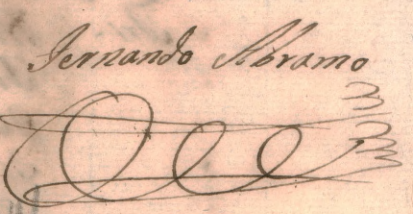 Fernando Abramo